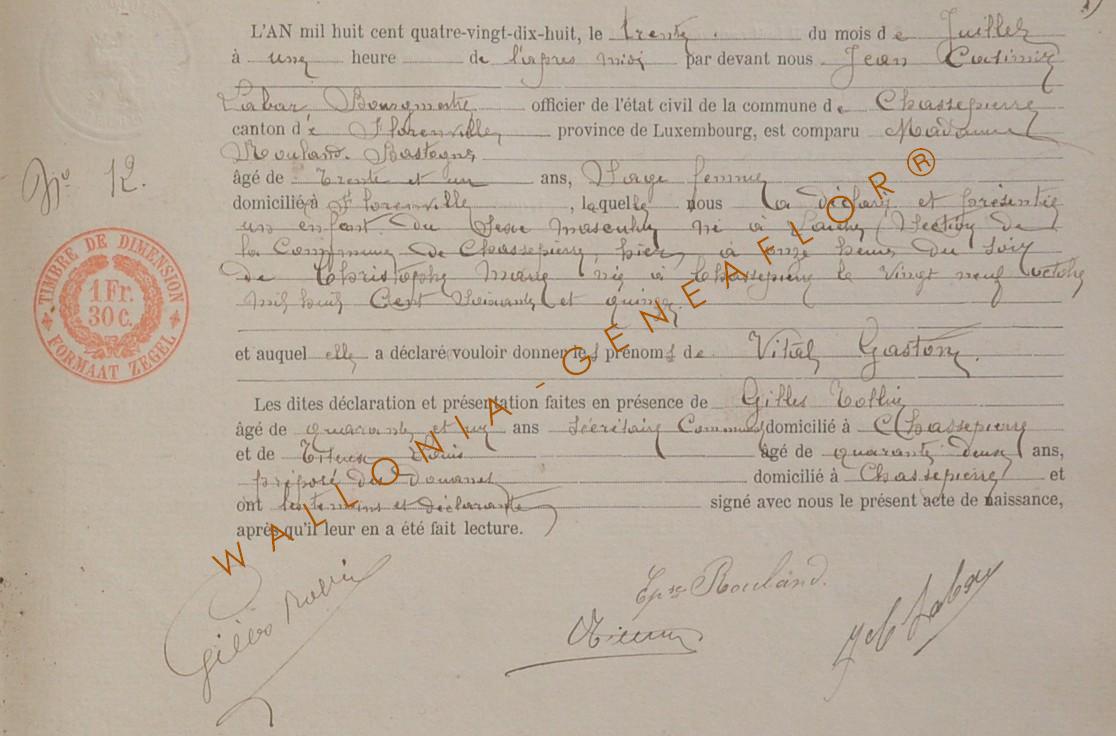 L'AN mil huit cent quatre-vingt-dix-huit, le trente du mois de Juillet
à une heure de l'après midi par devant nous Jean Casimir
Labar Bourgmestre officier de l'état civil de la commune de Chassepierre
canton de Florenville province de Luxembourg, est comparu Madame
Rouland Bastogne
Nº 12.
âgé de trente et un ans, Sage femme
domicilié à Florenville, laquelle nous a déclaré et présenté
un enfant du Sexe masculin né à Laiche Section de
la Commune de Chassepierre, hier à onze heures du Soir
de Christophe Marie née à Chassepierre le Vingt neuf octobre
mil huit Cent Soixante et quinze.
et auquel elle a déclaré vouloir donner les prénoms de Vital Gaston.
Les dites déclaration et présentation faites en présence de Gilles
âgé de quarante et un ans Secrétaire Communal domicilié à Chassepierre
et de Louis âgé de quarante deux ans,
préposé des douanes domicilié à Chassepierre et
ont les témoins et déclarante signé avec nous le présent acte de naissance,
après qu'il leur en a été fait lecture.
TIMBRE DE DIMENSION
1 Fr.
30 C.
FORMAAT ZEGEL
WALLONIA - GENEAFLOR®
Epse Rouland.
Gilles
Labar